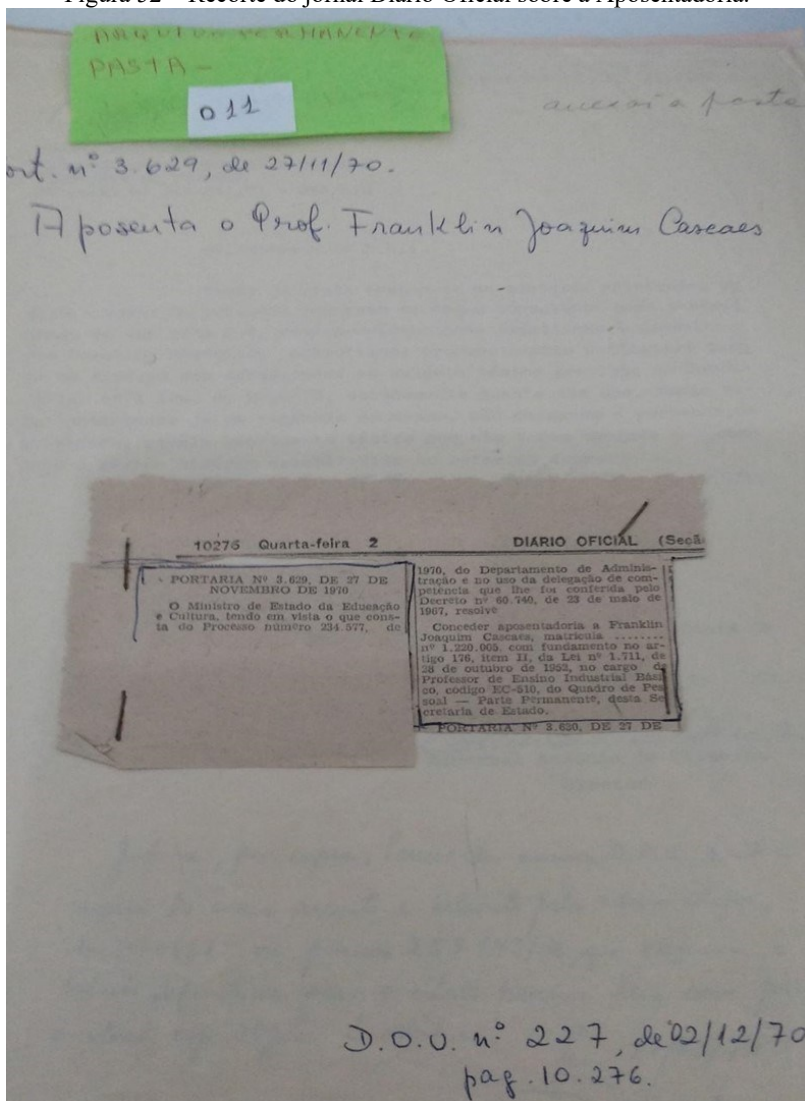 Figura 32 – Recorte do jornal Diário Oficial sobre a Aposentadoria.
ARQUIVO PERMANENTE
PASTA -
011
ort. nº 3.629, de 27/11/70.
Aposenta o Prof. Franklin Joaquim Cascaes
10276 Quarta-feira 2
DIÁRIO OFICIAL (Seçã
PORTARIA Nº 3.629, DE 27 DE
NOVEMBRO DE 1970
O Ministro de Estado da Educação
e Cultura, tendo em vista o que cons-
ta do Processo número 234.577, de
1970, do Departamento de Adminis-
tração e no uso da delegação de com-
petência que lhe foi conferida pelo
Decreto nº 60.740, de 23 de maio de
1967, resolve
Conceder aposentadoria a Franklin
Joaquim Cascaes, matrícula ........
nº 1.220.005, com fundamento no ar-
tigo 176, item II, da Lei nº 1.711, de
28 de outubro de 1952, no cargo de
Professor de Ensino Industrial Bási
co, código EC-510, do Quadro de Pes
soal — Parte Permanente, desta Se
cretaria de Estado.
PORTARIA Nº 3.630, DE 27 DE
D.O.U. nº 227, de 02/12/70
pag. 10.276.